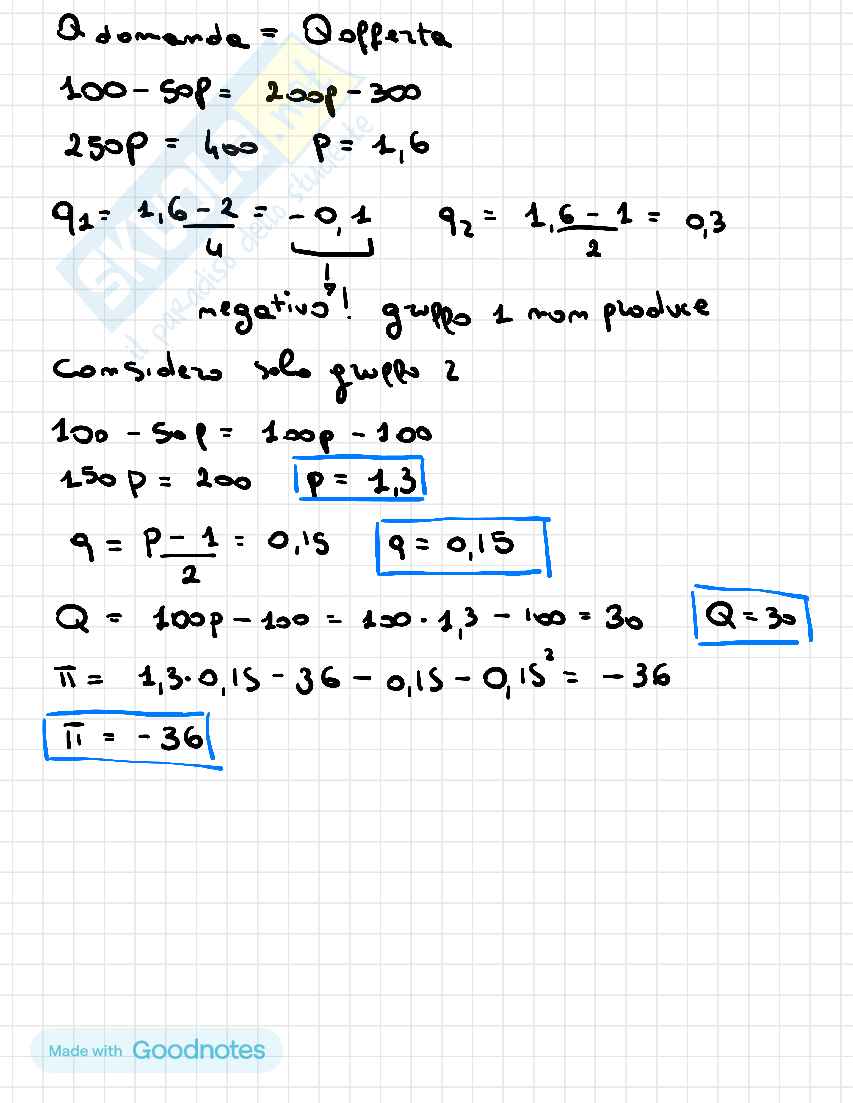 Q domanda = Q offerta
100 - 50p = 200p - 300
250p = 400 p = 1,6
q₁ = (1,6 - 2)/4 = -0,1 q₂ = (1,6 - 1)/2 = 0,3
negativo! gruppo 1 non produce
Considero solo gruppo 2
100 - 50p = 100p - 100
150p = 200 p = 1,3
q = (p - 1)/2 = 0,15 q = 0,15
Q = 100p - 100 = 100 · 1,3 - 100 = 30 Q = 30
π = 1,3 · 0,15 - 36 - 0,15 - 0,15² = -36
π = -36
SKUOLA.net
il paradiso dello studente
Made with Goodnotes